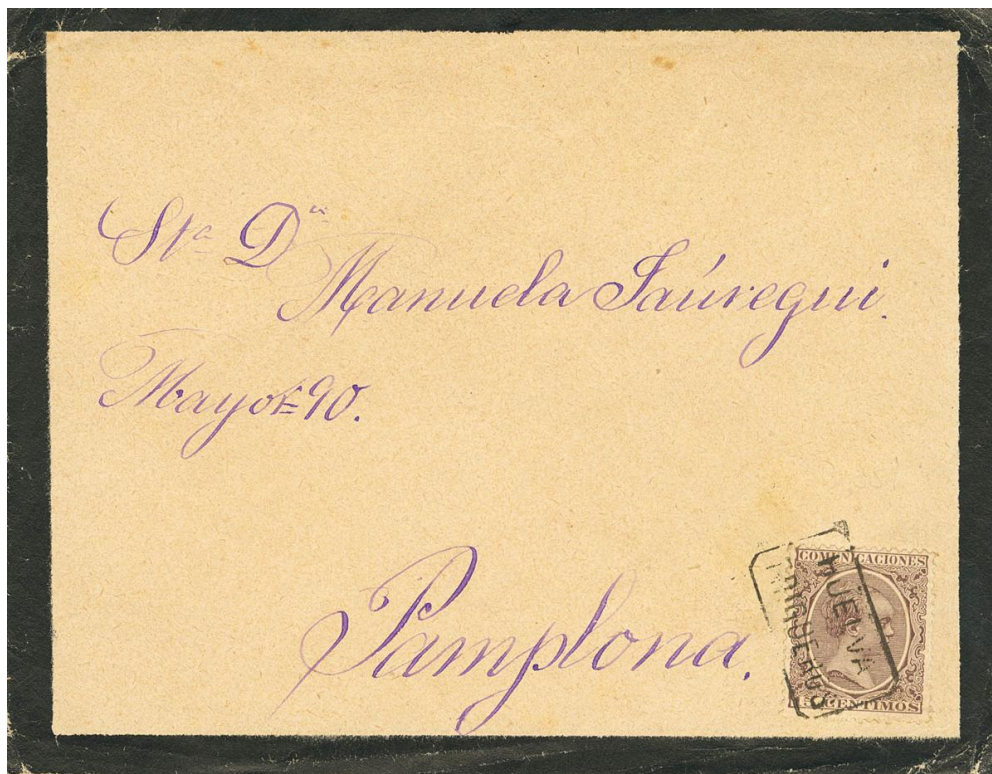 Sta Da
Manuela Jaúregui.
Mayor=90.
Pamplona.
COMUNICACIONES
HUELVA
TRIGUEROS
CENTIMOS